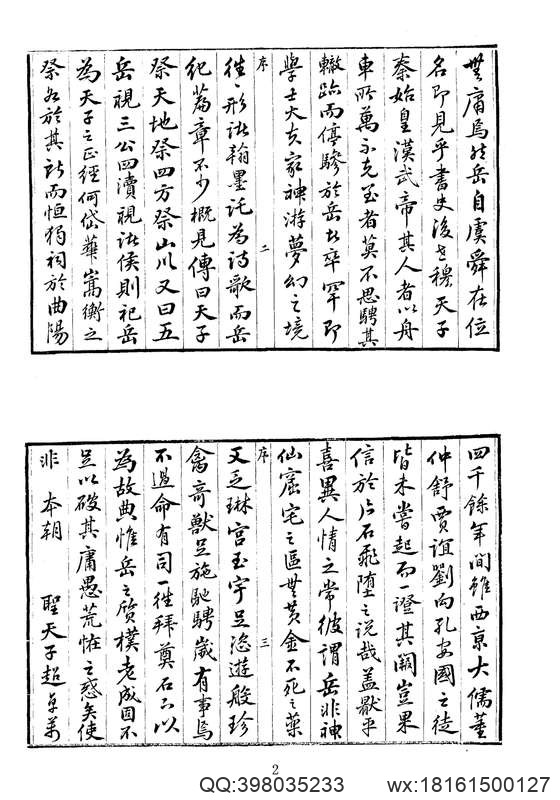 無庸焉於岳自虞舜在位
名即見乎書史後世穆天子
秦始皇漢武帝其人者以舟
車所萬不克至者莫不思騁其
轍跡而停驂於岳者卒罕即
學士大夫家神游夢幻之境
序
二
往〻形諸翰墨託為詩歌而岳
紀篇章不少概見傳曰天子
祭天地祭四方祭山川又曰五
岳視三公四瀆視諸侯則祀岳
為天子之正經何岱華嵩衡之
祭各於其所而恒獨祠於曲陽
四千餘年間雖西京大儒董
仲舒賈誼劉向孔安國之徒
皆未嘗起而一證其闕豈果
信於片石飛墮之說哉蓋厭平
喜異人情之常彼謂岳非神
仙窟宅之區無黃金不死之藥
序
三
又乏琳宮玉宇足恣遊般珍
禽奇獸足施馳騁歲有事焉
不過命有司一往拜奠而已以
為故典惟岳之質樸老成固不
足以破其庸愚荒怪之惑矣使
非本朝 聖天子超卓萬
2
QQ:398035233 wx:18161500127